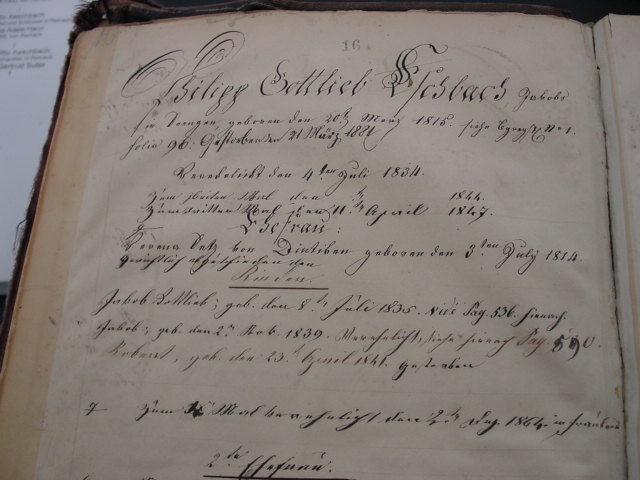 16
Philipp Gottlieb Eschbach Jakobs
in Seengen, geboren den 20ten März 1815. siehe No 1.
folio 96. Gestorben den 21 März 1881
Verehelicht den 4ten Juli 1834.
Zum zweiten Mal den 1844.
Zum dritten Mal den 11ten April 1847.
Ehefrau:
Verena von Dintiken geboren den 3ten July 1814.
gerichtlich abgeschieden den
Kinder.
Jakob Gottlieb; geb. den 8ten Juli 1835. vide Pag. 536. hienach.
Jakob; geb. den 2ten Nov. 1839. Verehelicht, siehe hienach Pag. 590.
Robert, geb. den 23ten April 1841. Gestorben
Zum Mal verehelicht den 2ten Aug. 1864 in
2te Ehefrau.